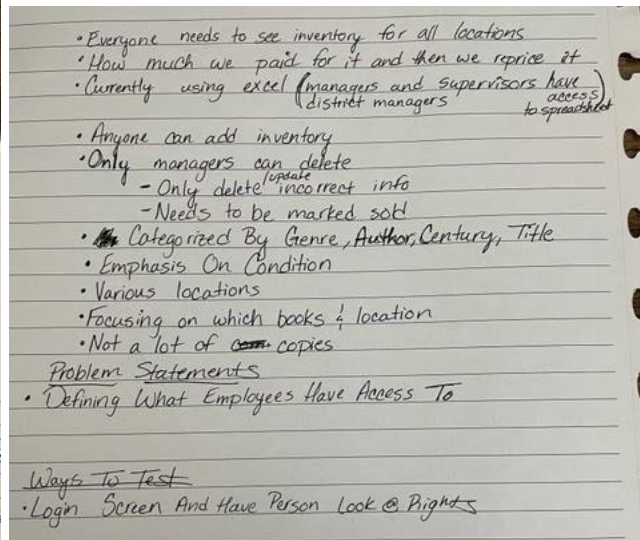 • Everyone needs to see inventory for all locations
• How much we paid for it and then we reprice it
• Currently using excel (managers and supervisors have access)
district managers to spreadsheet
• Anyone can add inventory
• Only managers can delete
- Only delete/update incorrect info
- Needs to be marked sold
• Categorized By Genre, Author, Century, Title
• Emphasis On Condition
• Various locations
• Focusing on which books & location
• Not a lot of copies
Problem Statements
• Defining What Employees Have Access To
Ways To Test
• Login Screen And Have Person Look @ Rights